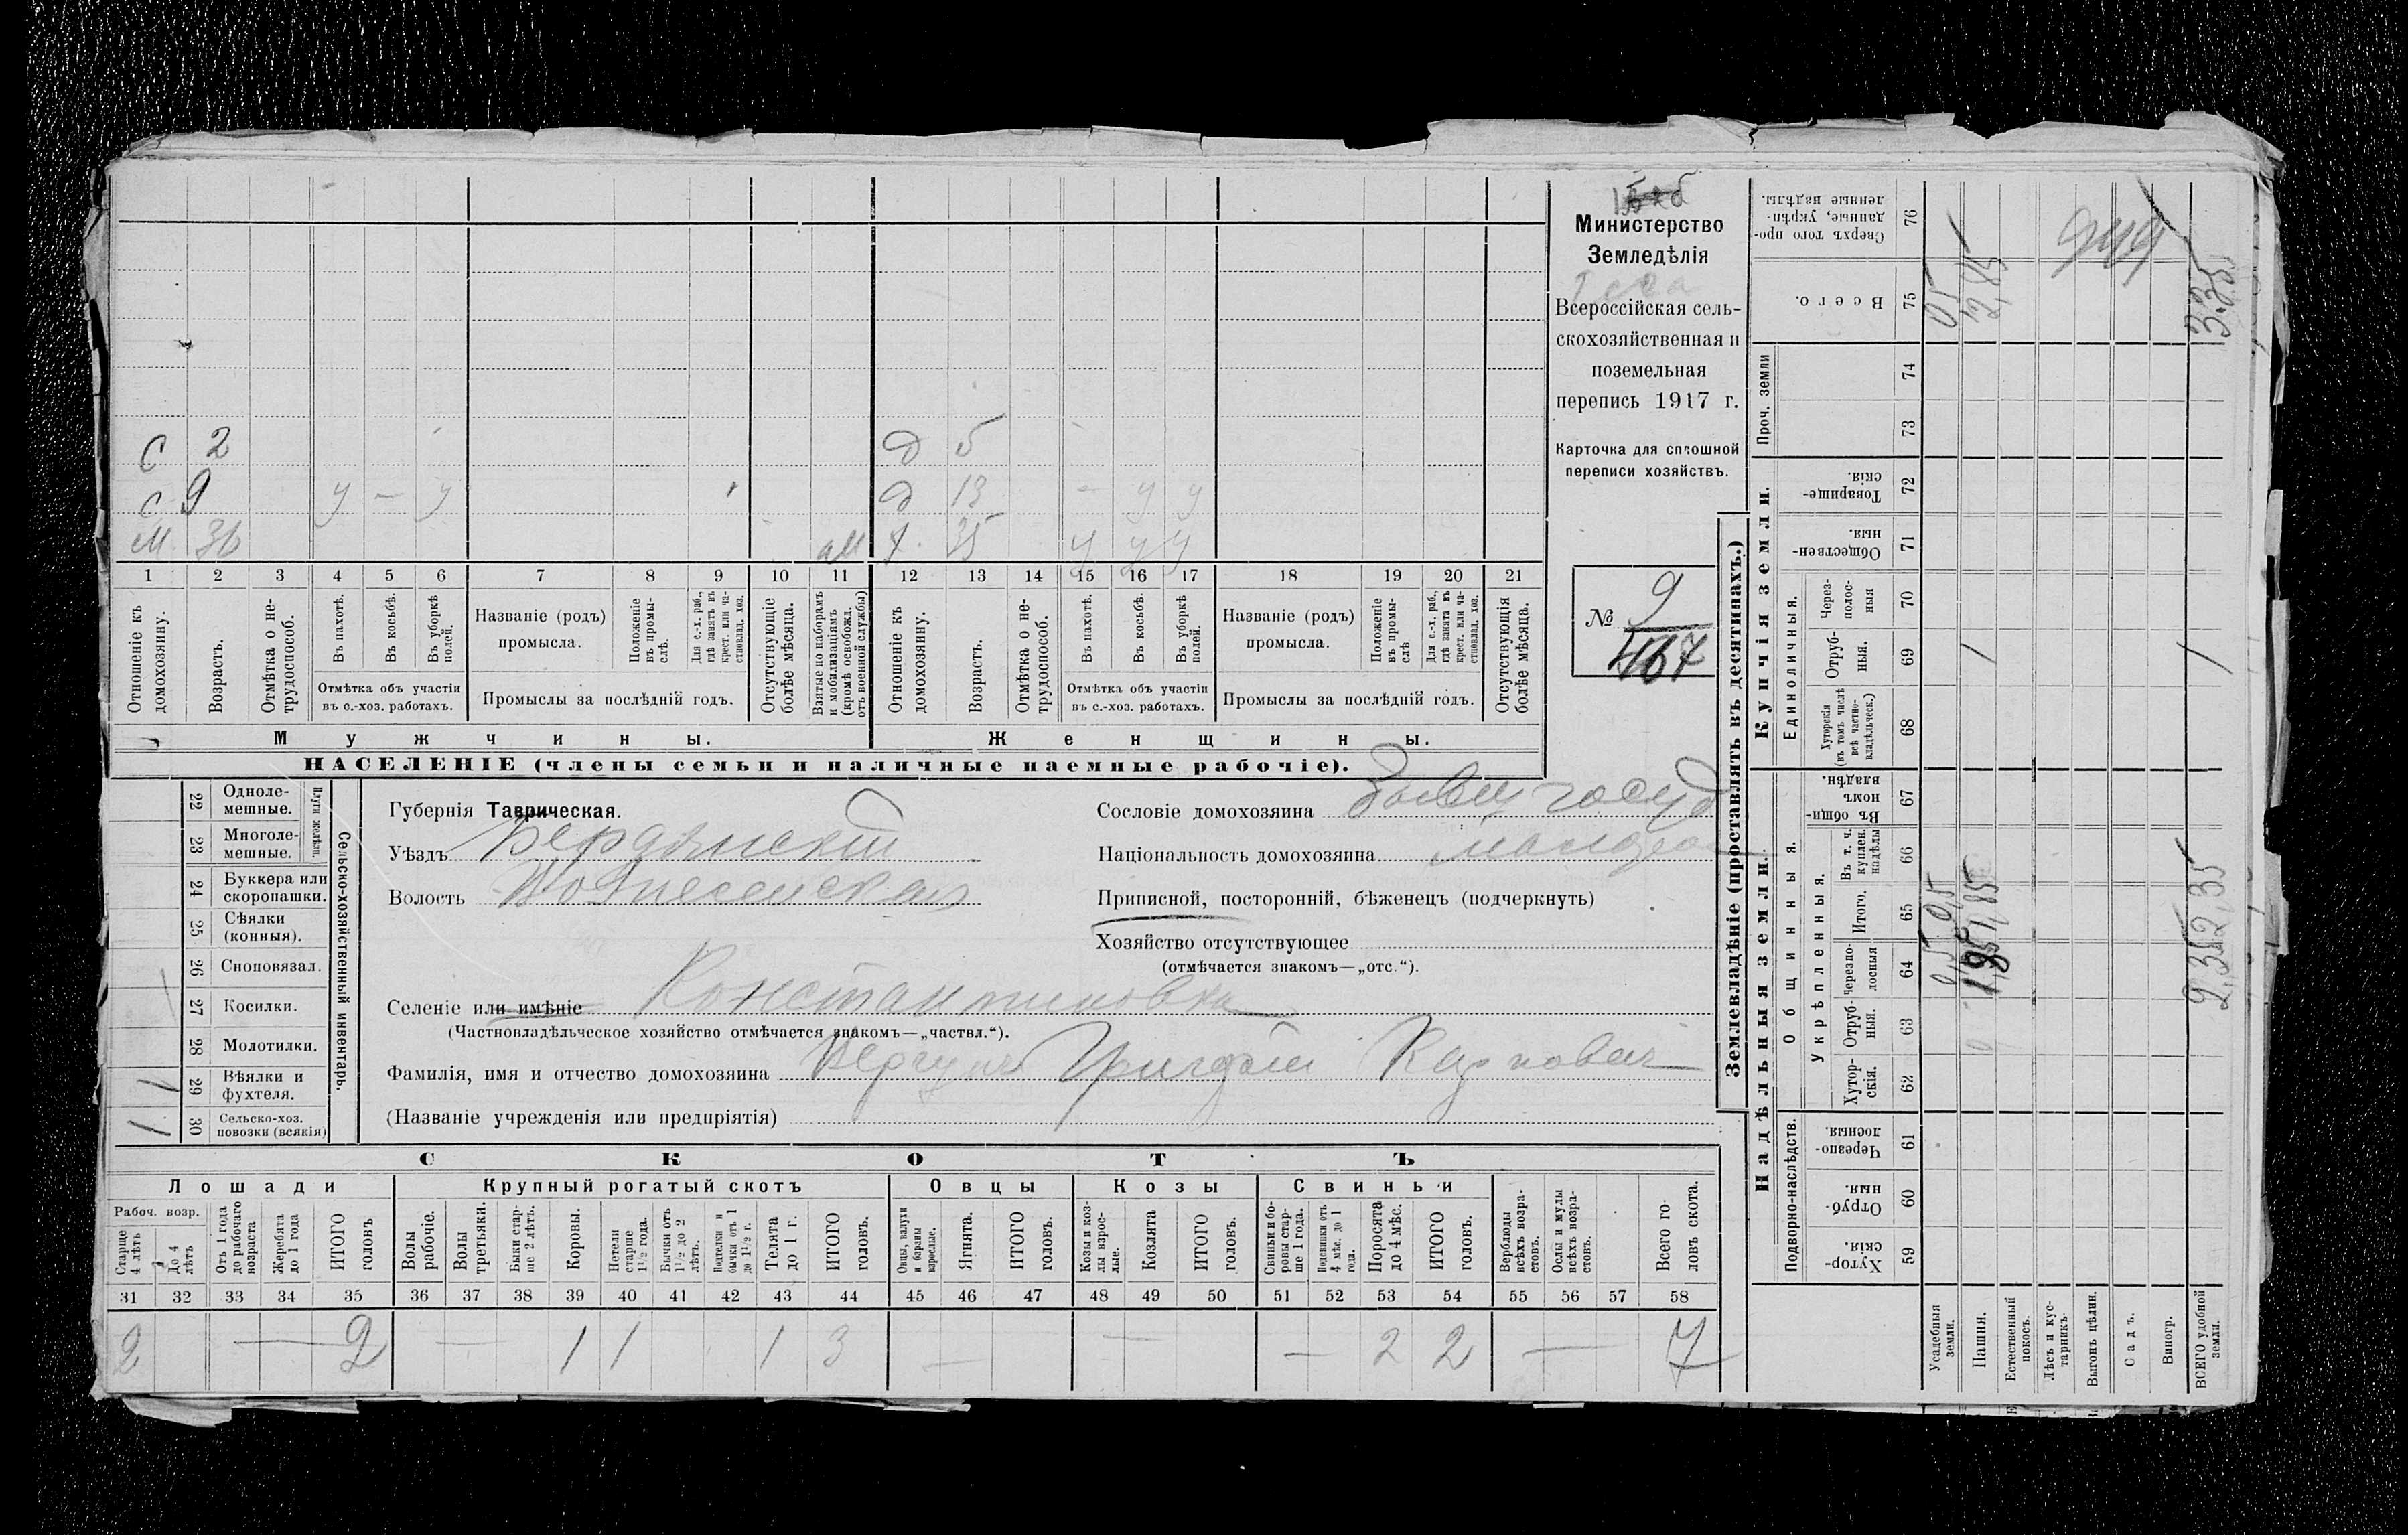 Министерство
Земледѣлія
Всероссійская сель-
скохозяйственная и
поземельная
перепись 1917 г.
Карточка для сплошной
переписи хозяйствъ.
№ 9
467
С 2
д 5
С 9 у — у
д 13 - у у
М 36
35 у у у
1 2 3 4 5 6 7 8 9 10 11 12 13 14 15 16 17 18 19 20 21
Отношеніе къ домохозяину.
Возрастъ.
Отмѣтка о не-трудоспособ.
Въ пахотѣ.
Въ косьбѣ.
Въ уборкѣ полей.
Отмѣтка объ участіи
въ с.-хоз. работахъ.
Названіе (родъ)
промысла.
Положеніе въ промы-слѣ.
Для с.-х. раб., гдѣ занятъ въ крест. или ча-стновлад. хоз.
Промыслы за послѣдній годъ.
Отсутствующіе болѣе мѣсяца.
Взятые по наборамъ и мобилизаціямъ (кромѣ освобожд. отъ военной службы)
Отношеніе къ домохозяину.
Возрастъ.
Отмѣтка о не-трудоспособ.
Въ пахотѣ.
Въ косьбѣ.
Въ уборкѣ полей.
Отмѣтка объ участіи
въ с.-хоз. работахъ.
Названіе (родъ)
промысла.
Положеніе въ промы-слѣ
Для с.-х. раб., гдѣ занята въ крест. или ча-стновлад. хоз.
Промыслы за послѣдній годъ.
Отсутствующія болѣе мѣсяца.
Мужчины.
Женщины.
НАСЕЛЕНІЕ (члены семьи и наличные наемные рабочіе).
22 Однолемешные.
23 Многолемешные.
Плуги желѣзн.
24 Буккера или скоропашки.
25 Сѣялки (конныя).
26 Сноповязал.
27 Косилки.
28 Молотилки.
29 Вѣялки и фухтеля. 1
30 Сельско-хоз. повозки (всякія) 1
Сельско-хозяйственный инвентарь.
Губернія Таврическая.
Уѣздъ Бердянскій
Волость Вознесенская
Селеніе или имѣніе Константиновка
(Частновладѣльческое хозяйство отмѣчается знакомъ—„частвл.“).
Фамилія, имя и отчество домохозяина Григорій Карповичъ
(Названіе учрежденія или предпріятія)
Сословіе домохозяина Бывш госуд
Національность домохозяина
Приписной, посторонній, бѣженецъ (подчеркнуть)
Хозяйство отсутствующее
(отмѣчается знакомъ—„отс.“).
СКОТЪ
Лошади
Крупный рогатый скотъ
Овцы
Козы
Свиньи
Рабоч. возр.
Старше 4 лѣтъ
До 4 лѣтъ
Отъ 1 года до рабочаго возраста
Жеребята до 1 года
ИТОГО головъ
Волы рабочіе.
Волы третьяки.
Быки стар-ше 2 лѣтъ.
Коровы.
Нетели старше 1½ года.
Бычки отъ 1½ до 2 лѣтъ.
Подтелки и бычки отъ 1 до 1½ г.
Телята до 1 г.
ИТОГО головъ.
Овцы, валухи и бараны взрослые.
Ягнята.
ИТОГО головъ.
Козы и коз-лы взрос-лые.
Козлята
ИТОГО головъ.
Свиньи и бо-ровы стар-ше 1 года.
Подсвинки отъ 4 мѣс. до 1 года.
Поросята до 4 мѣс.
ИТОГО головъ.
Верблюды всѣхъ возра-стовъ.
Ослы и мулы всѣхъ возра-стовъ.
Всего го-ловъ скота.
31 32 33 34 35 36 37 38 39 40 41 42 43 44 45 46 47 48 49 50 51 52 53 54 55 56 57 58
2 — 2 — 1 1 1 3 — — — 2 2 — 7
Землевладѣніе (проставлять въ десятинахъ.)
Надѣльныя земли.
Купчія земли.
Проч. земли
Подворно-наслѣдств.
Общинныя.
Укрѣпленныя.
Единоличныя.
59 Хутор-скія.
60 Отруб-ныя.
61 Черезпо-лосныя.
62 Хутор-скія.
63 Отруб-ныя.
64 Черезпо-лосныя
65 Итого.
66 Въ т. ч. куплен. надѣлы
67 Въ общи-номъ владѣн.
68 Хуторскія (въ томъ числѣ всѣ частно-владѣльческ.)
69 Отруб-ныя.
70 Через-полос-ныя
71 Обществен-ныя.
72 Товарище-скія.
73
74
75 Всего.
76 Сверхъ того про-данные, укрѣп-ленные надѣлы.
Усадебныя земли. 0,5 0,5 0,5
Пашня. 1,85 1,85 1 2,85
Естественный покосъ.
Лѣсъ и кус-тарникъ.
Выгонъ цѣлин.
Садъ.
Виногр.
ВСЕГО удобной земли. 2,35 2,35 1 3.35